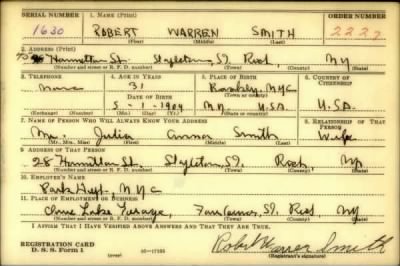 SERIAL NUMBER 1. NAME (Print) ORDER NUMBER
1630 ROBERT WARREN SMITH 2227
(First) (Middle) (Last)
2. ADDRESS (Print)
Hamilton St. Rich, NY
(Number and street or R. F. D. number) (Town) (County) (State)
3. TELEPHONE 4. AGE IN YEARS 5. PLACE OF BIRTH 6. COUNTRY OF CITIZENSHIP
None 31
DATE OF BIRTH
5-1-1909 U.S.A. U.S.A.
(Mo.) (Day) (Yr.) (State or country)
7. NAME OF PERSON WHO WILL ALWAYS KNOW YOUR ADDRESS 8. RELATIONSHIP OF THAT PERSON
Mrs. Julia Smith Wife
(Mr., Mrs., Miss) (First) (Middle) (Last)
9. ADDRESS OF THAT PERSON
28 Hamilton St. Rich. NY
(Number and street or R. F. D. number) (Town) (County) (State)
10. EMPLOYER'S NAME
Park Dept. NYC
11. PLACE OF EMPLOYMENT OR BUSINESS
Lake NY
(Number and street or R. F. D. number) (Town) (County) (State)
I AFFIRM THAT I HAVE VERIFIED ABOVE ANSWERS AND THAT THEY ARE TRUE.
REGISTRATION CARD
D. S. S. Form 1 (over) Robert Warren Smith
(Registrant's signature)